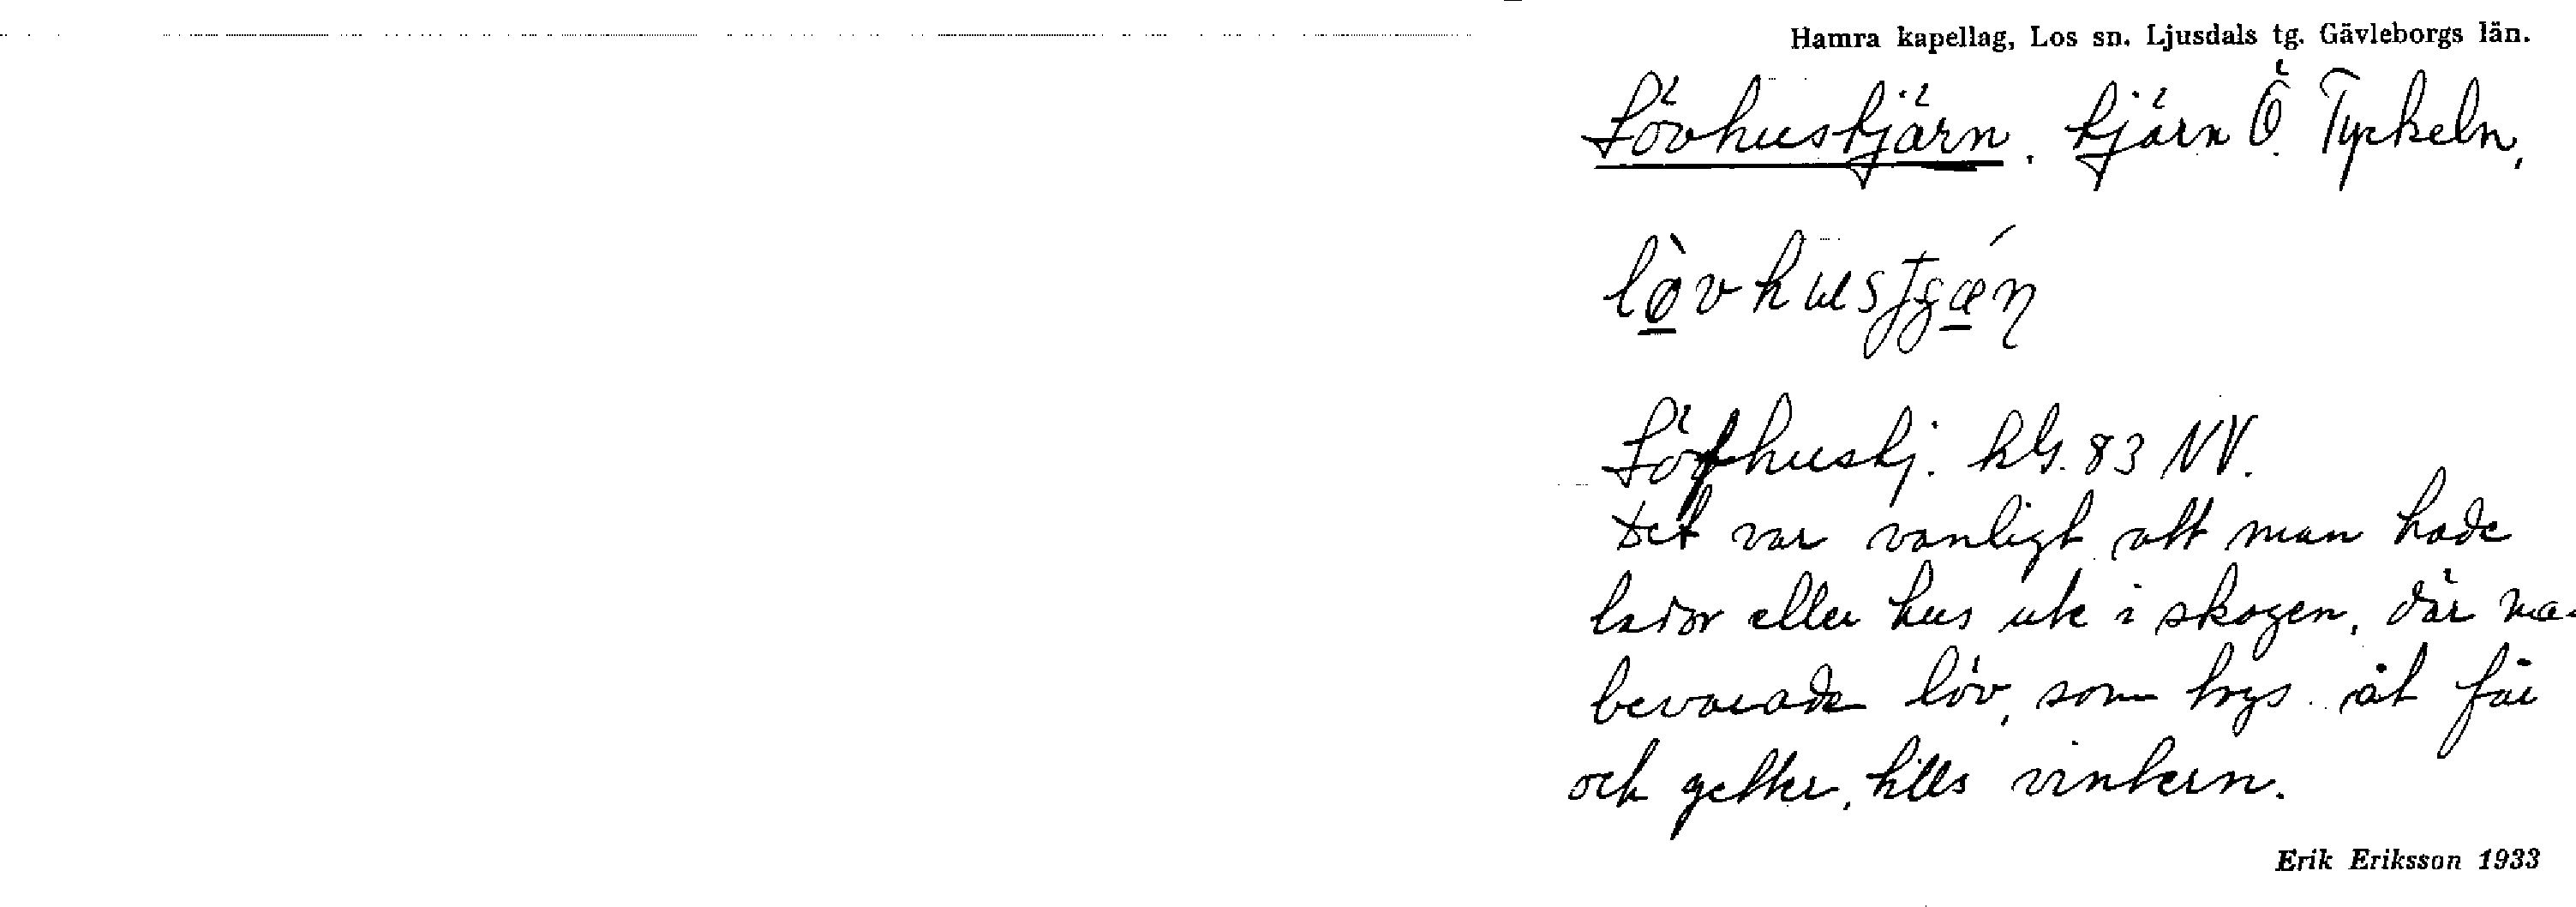 Hamra kapellag, Los sn. Ljusdals tg. Gävleborgs län.
Lövhustjärn. tjärn Ö. Tyckeln.
Löfhustj. kbl. 83 NV.
Det var vanligt att man hade
lador eller hus ute i skogen, där
bevarade löv, som togs åt får
och getter, tills vintern.
Erik Eriksson 1933